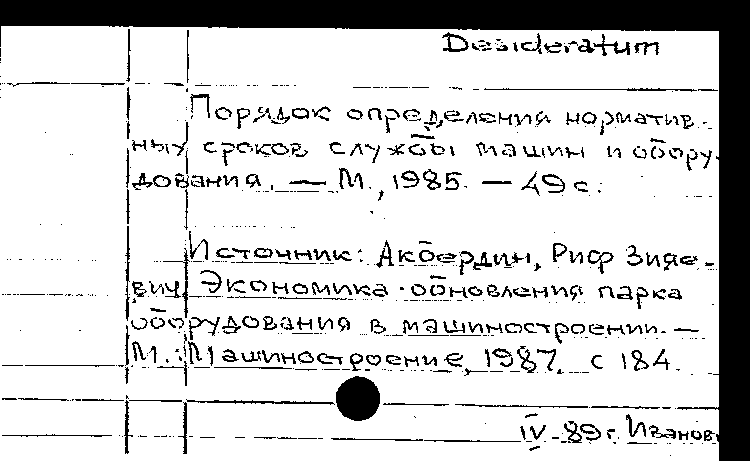 Desideratum
Порядок определения норматив-
ных сроков службы машин и обору-
дования. — М., 1985. — 49 с.
Источник: Акбердин, Риф Зияе-
вич. Экономика обновления парка
оборудования в машиностроении. —
М.: Машиностроение, 1987. с 184.
IV-89 г. Иванов